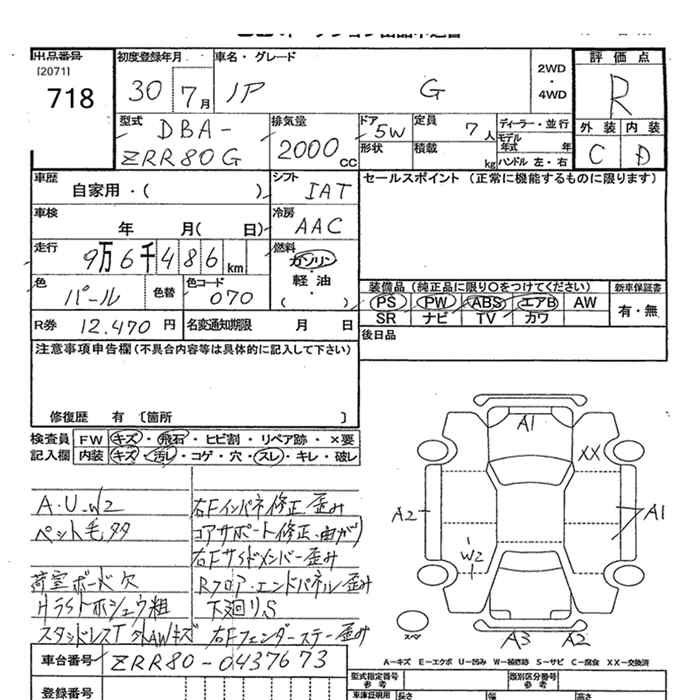 出品番号
[2071]
718
初度登録年月
30 7月
車名・グレード
1P G
2WD
・
4WD
評価点
R
外装 内装
C D
型式
DBA-
ZRR80G
排気量
2000cc
ドア
5W
形状
定員
7人
積載
kg
ディーラー・並行
モデル年式 年
ハンドル 左・右
車歴
自家用・( )
シフト
IAT
セールスポイント (正常に機能するものに限ります)
車検
年 月( 日)
冷房
AAC
走行
9万6千486km
燃料
ガソリン
・
軽油
・
( )
色
パール
色替
色コード
070
装備品 (純正品に限り○をつけてください)
PS PW ABS エアB AW
SR ナビ TV カワ
新車保証書
有・無
R券 12,470円
名変通知期限 月 日
後日品
注意事項申告欄(不具合内容等は具体的に記入して下さい)
修復歴 有 〔箇所 〕
検査員記入欄
FW キズ・飛石・ヒビ割・リペア跡・×要
内装 キズ・汚レ・コゲ・穴・スレ・キレ・破レ
A.U.W2
ペット毛多々
荷室ボード欠
HライトホシュウI粗
スタッドレスT 外AWキズ
右Fインパネ修正、歪み
コアサポート修正、曲がり
右Fサイドメンバー歪み
Rフロア・エンドパネル歪み
下廻りS
右Fフェンダーステー歪み
A1
XX
A2
A1
W2
A3
A2
スペア
A−キズ E−エクボ U−凹み W−補修跡 S−サビ C−腐食 XX−交換済
車台番号
ZRR80-0437673
登録番号
型式指定番号
参考
類別区分番号
参考
車庫証明用
長さ
幅
高さ